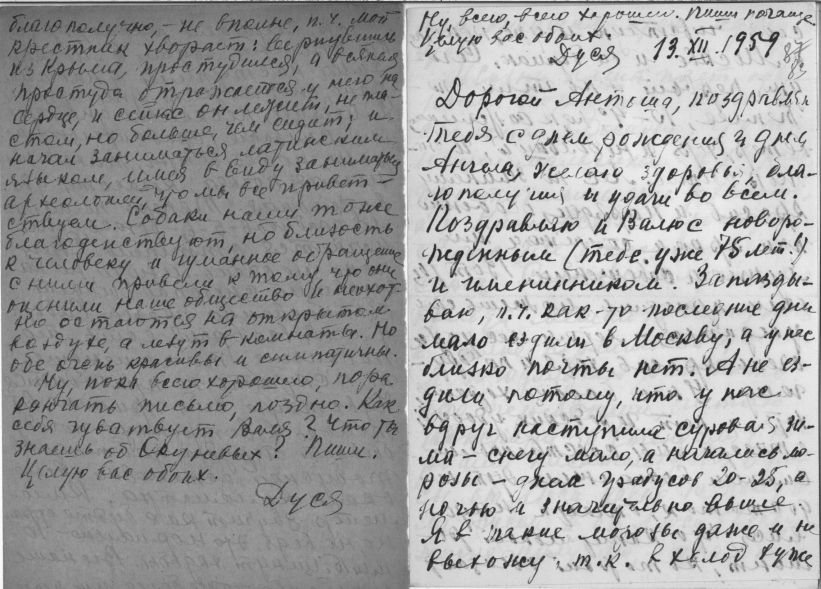 благополучно, – не вполне, п.ч. мой
крестник хворает: вернувшись
из Крыма, простудился, а всякая
простуда отражается у него на
сердце, и сейчас он лежит, не пла-
стом, но больше, чем сидит, и
начал заниматься латинским
языком, имея в виду заниматься
археологией, что мы все привет-
ствуем. Собаки наши тоже
благоденствуют, но близость
к человеку и гуманное обращение
с ними привели к тому, что они
оценили наше общество и неохот-
но остаются на открытом
воздухе, а лезут в комнаты. Но
обе очень красивы и симпатичны.
Ну, пока всего хорошего, пора
кончать письмо, поздно. Как
себя чувствует Валя? Что ты
знаешь об Окуневых? Пиши.
Целую вас обоих.
Дуся
Ну, всего, всего хорошего. Пиши почаще.
Целую вас обоих.
Дуся 13.XII.1959
Дорогой Антоша, поздравляю
тебя с днем рождения и днем
Ангела, желаю здоровья, бла-
гополучия и удачи во всем.
Поздравляю и Валю с новоро-
жденным (тебе уже 75 лет!)
и именинником. Запазды-
ваю, п.ч. как-то последние дни
мало ездили в Москву, а у нас
близко почты нет. А не ез-
дили потому, что у нас
вдруг наступила суровая зи-
ма – снегу мало, а начались мо-
розы – днем градусов 20-25, а
ночью и значительно выше
Я в такие морозы даже и не
выхожу, т.к. в холод хуже